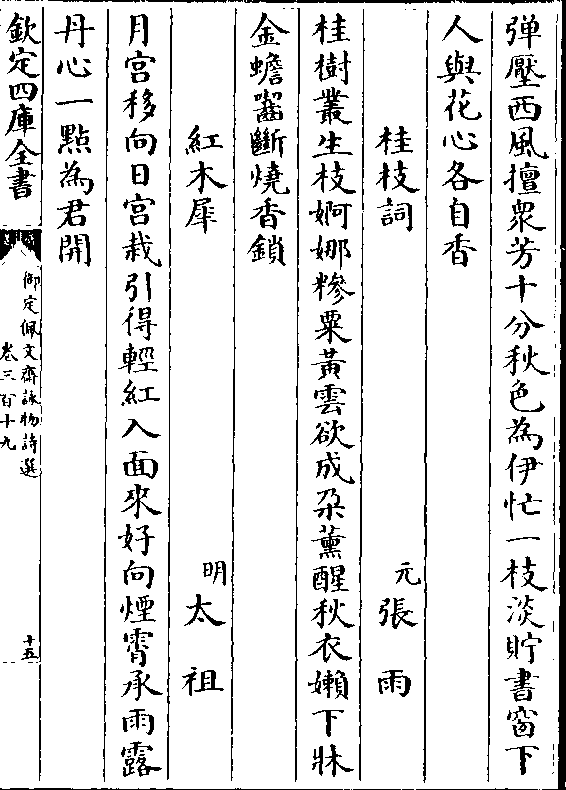 弹壓西風擅衆芳十分秋色為伊忙一枝淡貯書窗下
人與花心各自香
桂枝詞
元張雨
桂樹叢生枝婀娜糝粟黃雲欲成朶薰醒秋衣嬾下牀
金蟾齧斷燒香鎖
紅木犀
明太祖
月宮移向日宮栽引得輕紅入面來好向煙霄承雨露
丹心一點為君開
欽定四庫全書
御定佩文齋詠物詩選
卷三百十九
十五